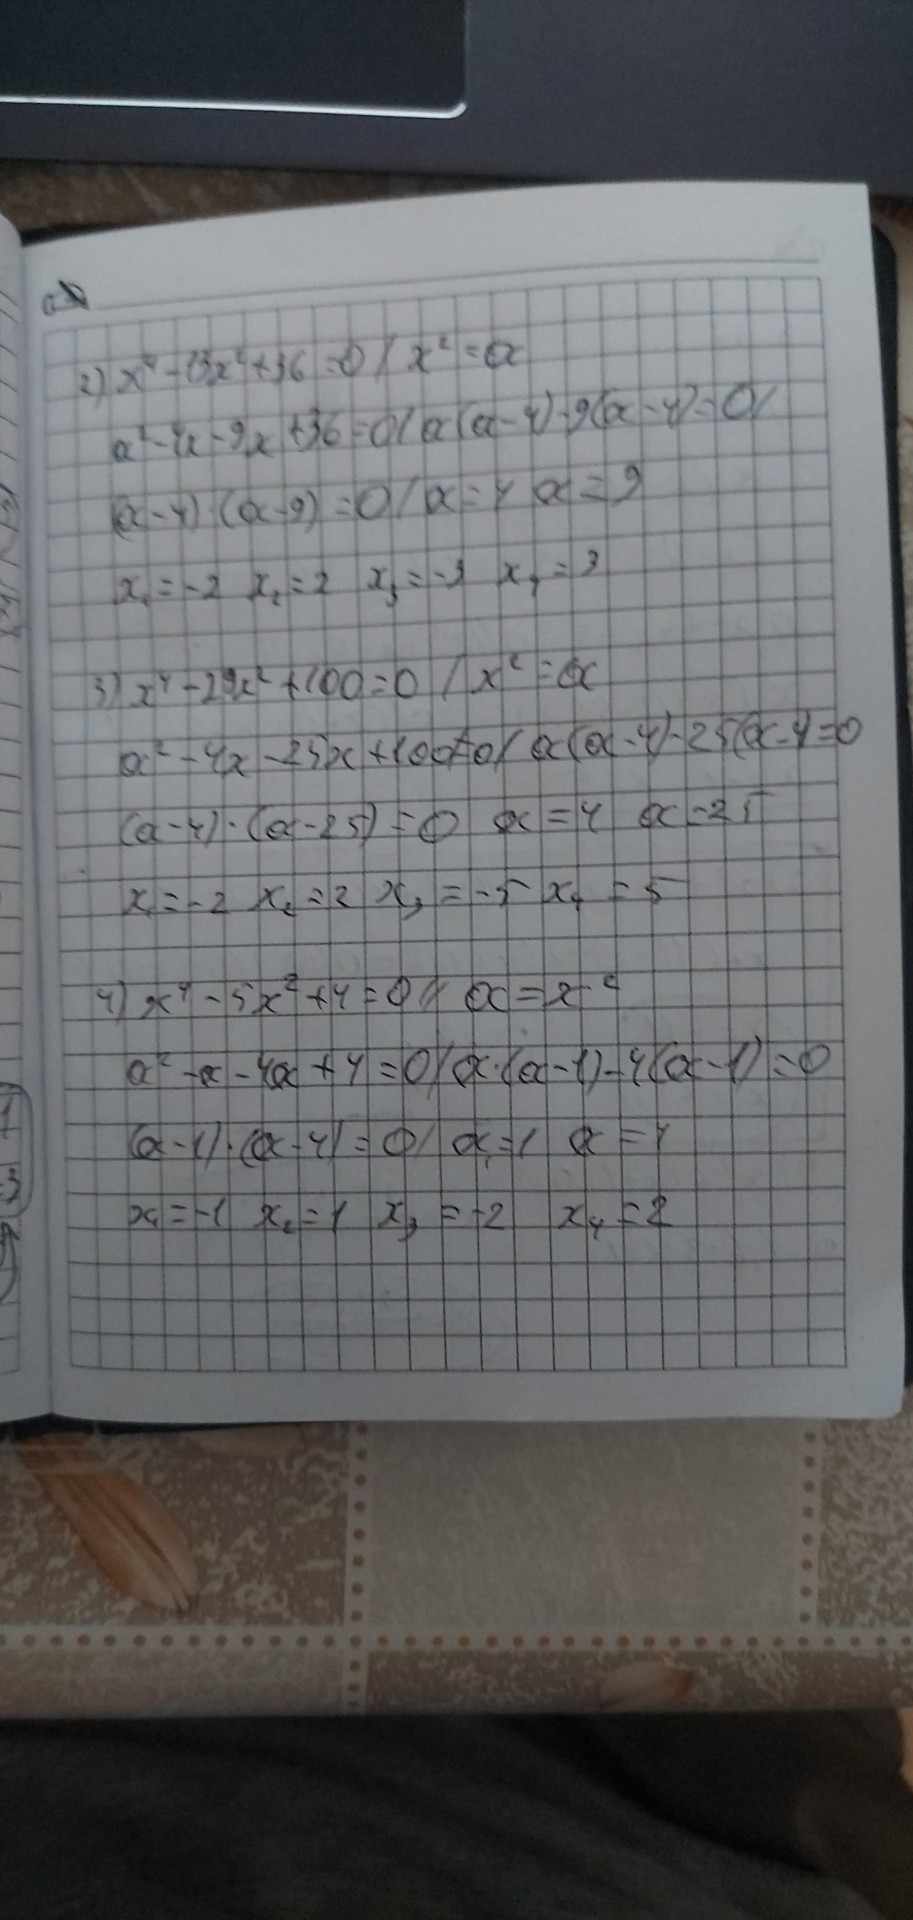 2) x⁴-13x²+36=0 / x²=a
a²-4x-9x+36=0 / a(a-4)-9(a-4)=0/
(a-4)·(a-9)=0 / a=4 a=9
x₁=-2 x₂=2 x₃=-3 x₄=3
3) x⁴-29x²+100=0 / x²=a
a²-4x-25x+100=0 / a(a-4)-25(a-4=0
(a-4)·(a-25)=0 a=4 a=25
x₁=-2 x₂=2 x₃=-5 x₄=5
4) x⁴-5x²+4=0 // a=x²
a²-a-4a+4=0 / a·(a-1)-4(a-1)=0
(a-1)·(a-4)=0 / a=1 a=4
x₁=-1 x₂=1 x₃=-2 x₄=2